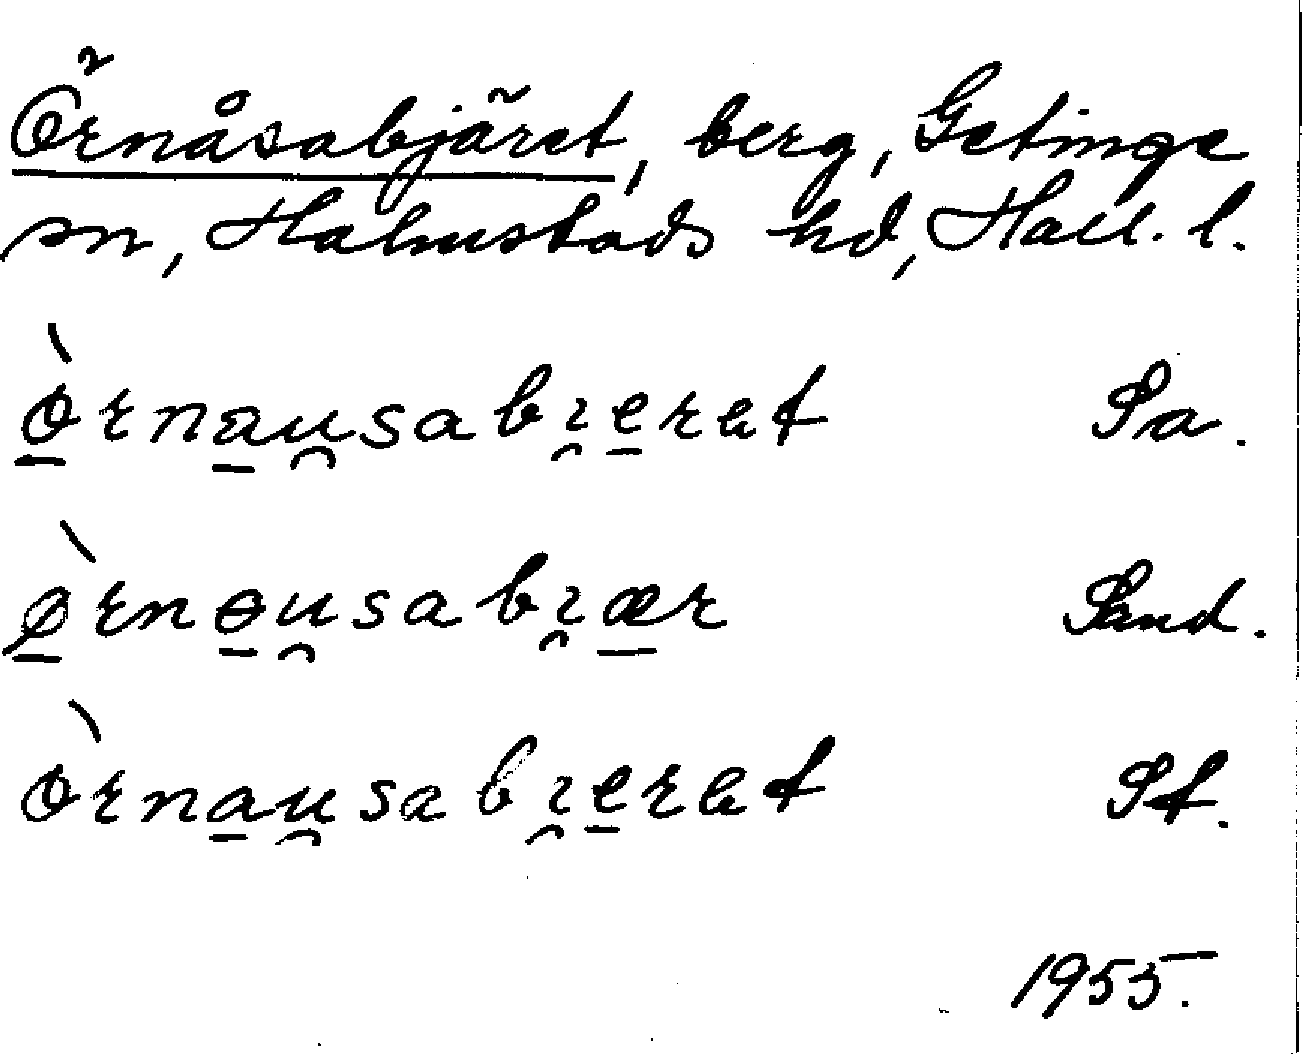 Örnåsabjäret, berg, Getinge
sn, Halmstads hd, Hall. l.
 òrnau̯sabɪ̯eret Sa.
ø̀rnɵu̯sabɪ̯ær Sand.
òrnau̯sabɪ̯eret St.
1955.